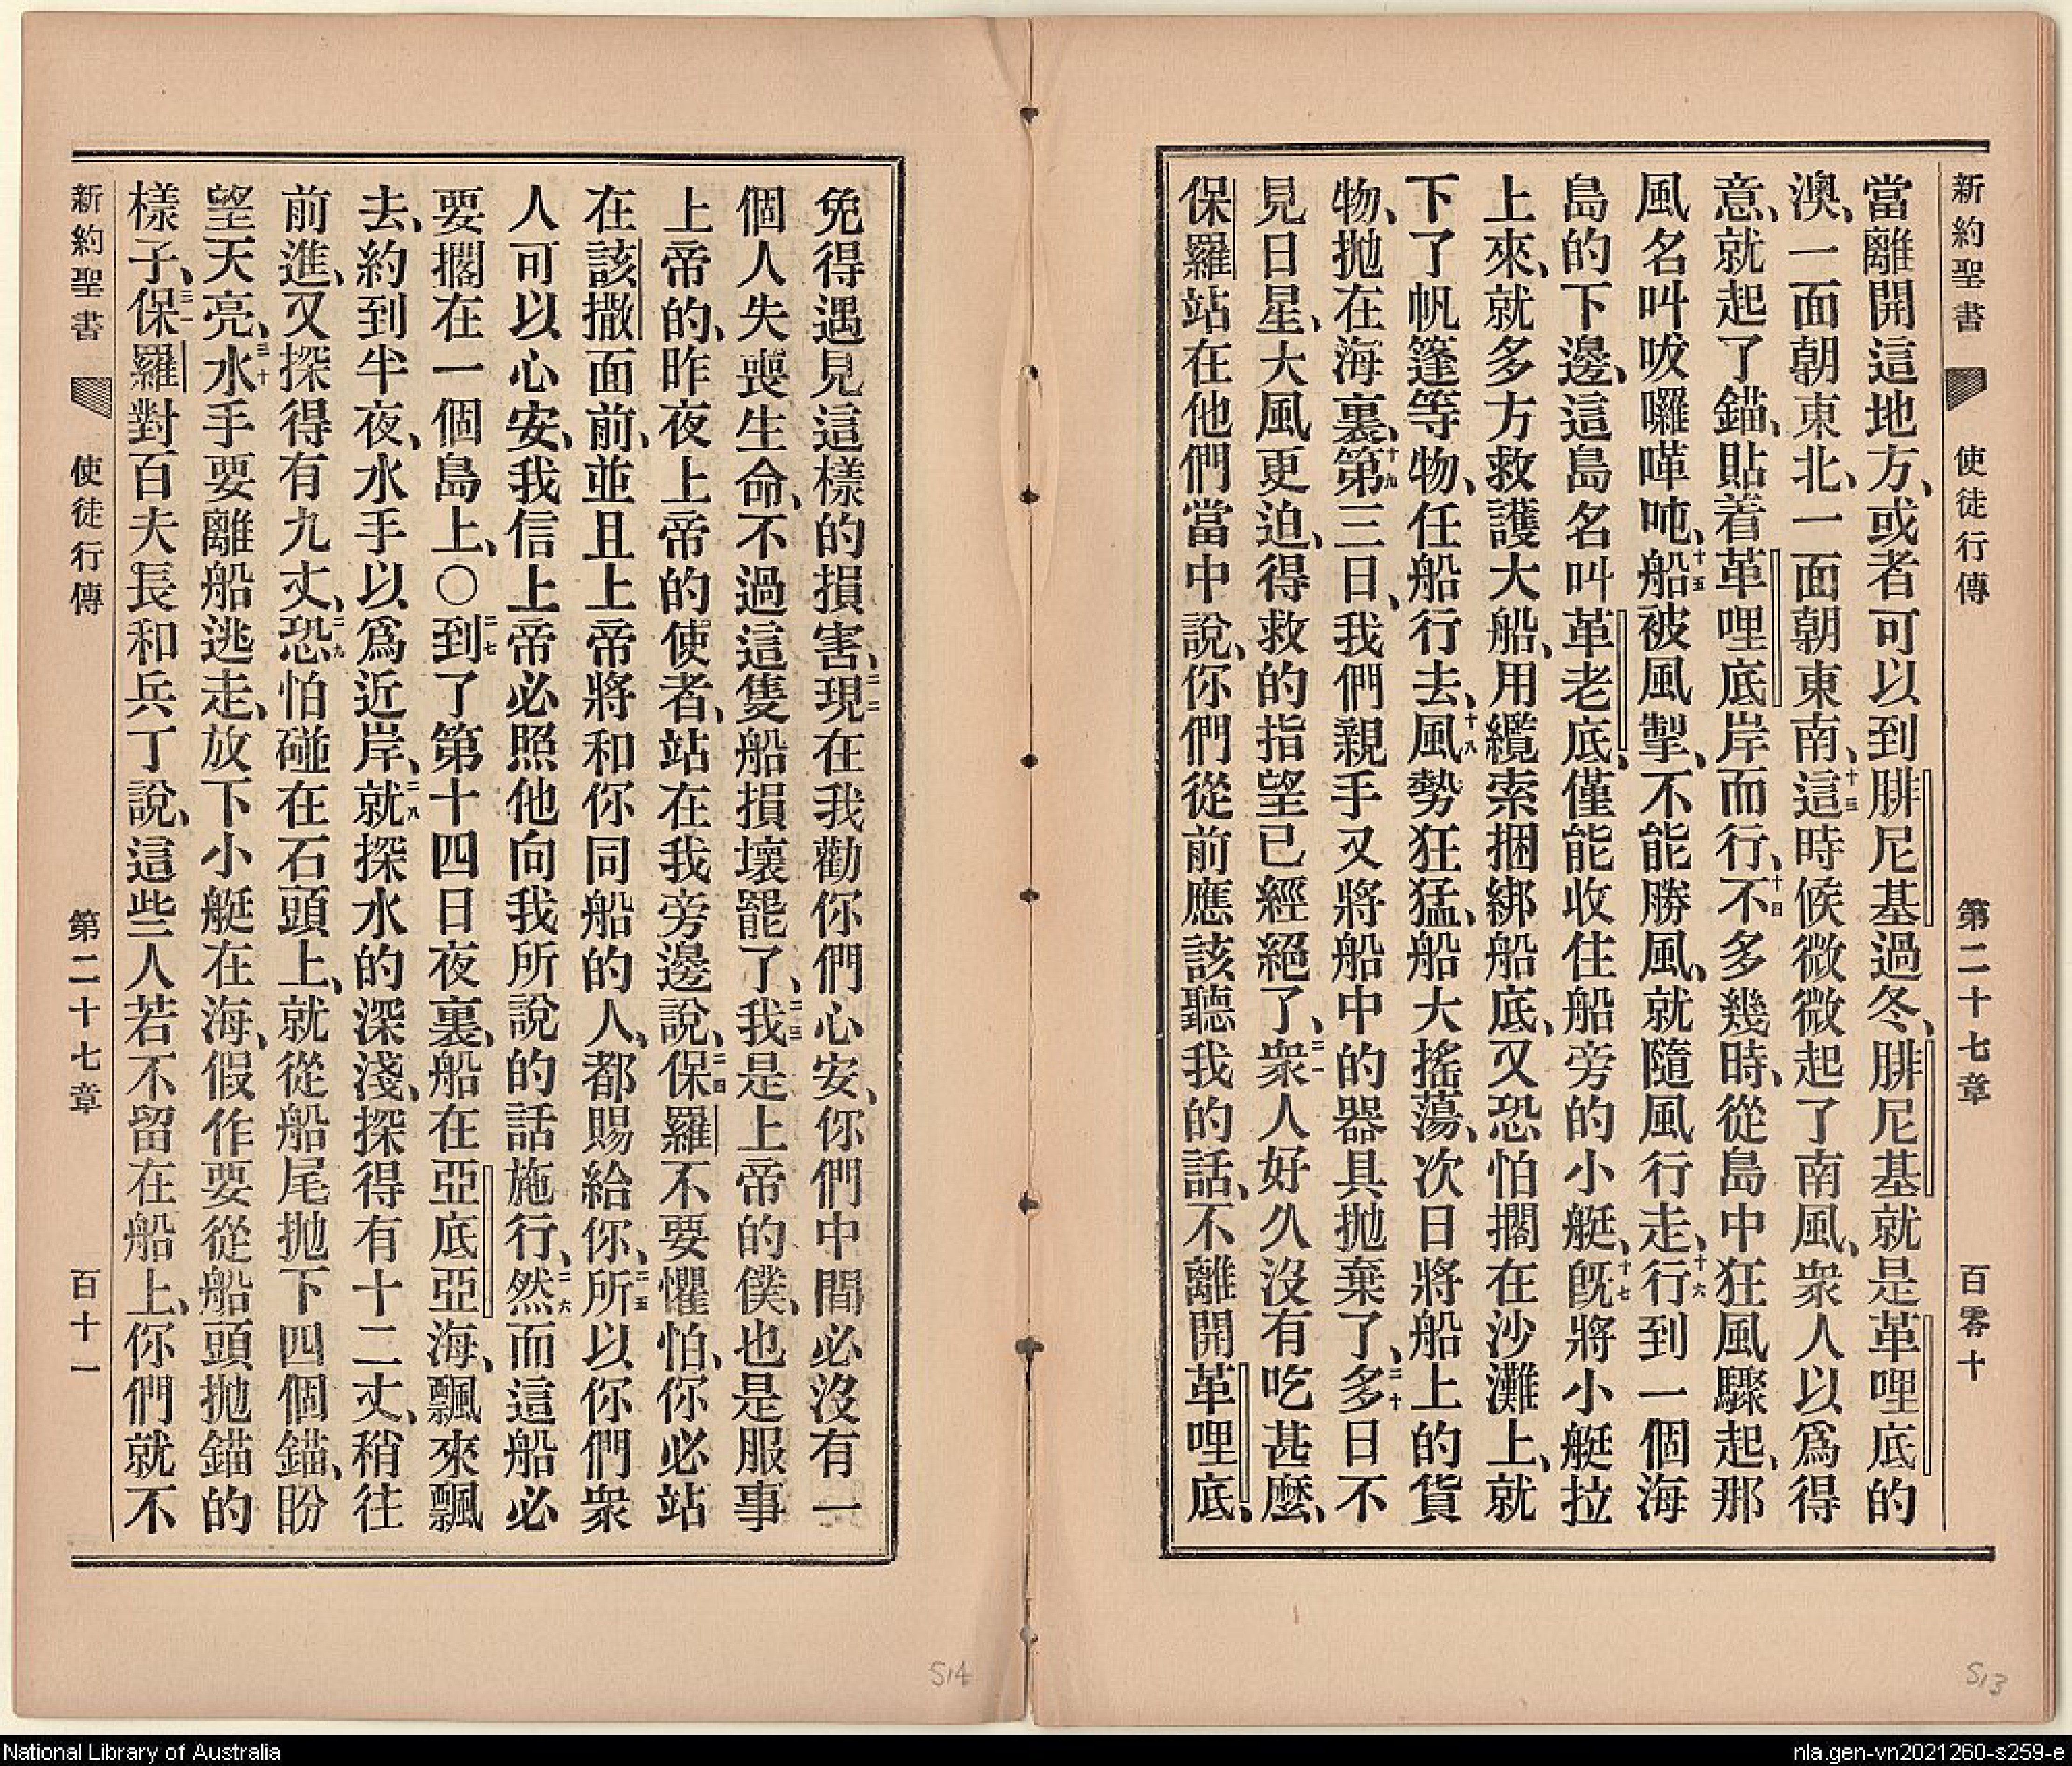 新約聖書 使徒行傳 第二十七章 百零十
當離開這地方、或者可以到腓尼基過冬、腓尼基就是革哩底的
澳、一面朝東北、一面朝東南、十三這時候微微起了南風、衆人以爲得
意、就起了錨、貼着革哩底岸而行、十四不多幾時、從島中狂風驟起、那
風名叫㕹囉嘩吨、十五船被風掣、不能勝風、就隨風行走、十六行到一個海
島的下邊、這島名叫革老底、僅能收住船旁的小艇、十七旣將小艇拉
上來、就多方救護大船、用纜索捆綁船底、又恐怕擱在沙灘上、就
下了帆篷等物、任船行去、十八風勢狂猛、船大搖蕩、次日將船上的貨
物、拋在海裏、十九第三日、我們親手又將船中的器具拋棄了、二十多日不
見日星、大風更迫、得救的指望已經絕了、二一衆人好久沒有吃甚麼、
保羅站在他們當中說、你們從前應該聽我的話、不離開革哩底、
免得遇見這樣的損害、二二現在我勸你們心安、你們中間必沒有一
個人失喪生命、不過這隻船損壞罷了、二三我是上帝的僕、也是服事
上帝的、昨夜上帝的使者、站在我旁邊說、二四保羅不要懼怕、你必站
在該撒面前、並且上帝將和你同船的人、都賜給你、二五所以你們衆
人可以心安、我信上帝必照他向我所說的話施行、二六然而這船必
要擱在一個島上、〇二七到了第十四日夜裏、船在亞底亞海、飄來飄
去、約到半夜、水手以爲近岸、二八就探水的深淺、探得有十二丈、稍往
前進、又探得有九丈、二九恐怕碰在石頭上、就從船尾拋下四個錨、盼
望天亮、三十水手要離船逃走、放下小艇在海、假作要從船頭拋錨的
樣子、三一保羅對百夫長和兵丁說、這些人若不留在船上、你們就不
新約聖書 使徒行傳 第二十七章 百十一
514
513
National Library of Australia
nla.gen-vn2021260-s259-e